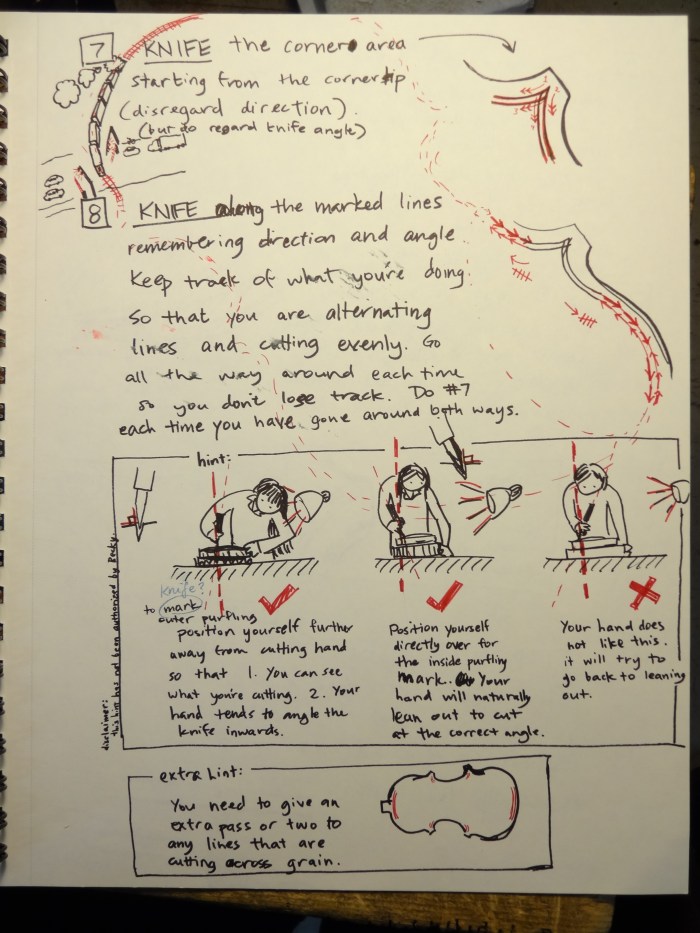 7 KNIFE the corner area
starting from the corner tip
(disregard direction).
(but do regard knife angle)
8 KNIFE along the marked lines
remembering direction and angle.
Keep track of what you're doing
so that you are alternating
lines and cutting evenly. Go
all the way around each time
so you don't lose track. Do #7
each time you have gone around both ways.
hint:
disclaimer:
this hint has not been authorized by
knife?
to mark
outer purfling
position yourself further
away from cutting hand
so that 1. You can see
what you're cutting. 2. Your
hand tends to angle the
knife inwards.
Position yourself
directly over for
the inside purfling
mark. Your
hand will naturally
lean out to cut
at the correct angle.
Your hand does
not like this.
it will try to
go back to leaning
out.
extra hint:
You need to give an
extra pass or two to
any lines that are
cutting across grain.